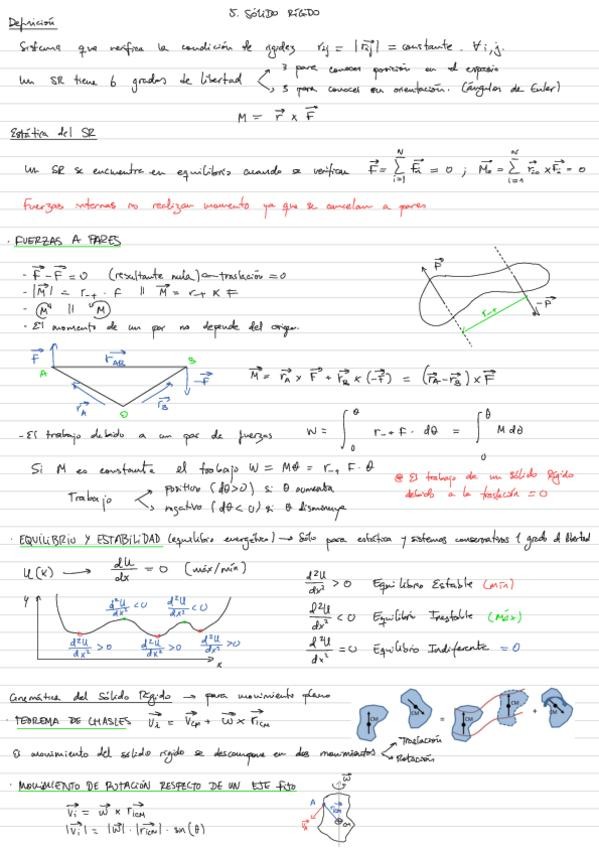 5. SÓLIDO RÍGIDO
Definición
Sistema que verifica la condición de rigidez rij = |r⃗ij| = constante ∀i,j.
Un SR tiene 6 grados de libertad
3 para conocer posición en el espacio
3 para conocer su orientación. (ángulos de Euler)
M = r⃗ x F⃗
Estática del SR
Un SR se encuentra en equilibrio cuando se verifican F⃗ = ∑ᵢ₌₁ᴺ F⃗i = 0 ; M⃗o = ∑ᵢ₌₁ᴺ r⃗io x F⃗i = 0
Fuerzas internas no realizan momento ya que se cancelan a pares
· FUERZAS A PARES
- F⃗ - F⃗ = 0 (resultante nula) — traslación = 0
- |M⃗| = r-+ · F || M⃗ = r-+ x F
- M || M
- El momento de un par no depende del origen.
F⃗
-F⃗
r-+
F⃗ A r⃗AB B -F⃗
r⃗A O r⃗B
M⃗ = r⃗A x F⃗ + r⃗B x (-F⃗) = (r⃗A - r⃗B) x F⃗
- El trabajo debido a un par de fuerzas W = ∫₀^θ r-+ F · dθ = ∫₀^θ M dθ
Si M es constante el trabajo W = Mθ = r-+ F · θ
Trabajo
positivo (dθ>0) si θ aumenta
negativo (dθ<0) si θ disminuye
El trabajo de un Sólido Rígido
debido a la traslación = 0
· EQUILIBRIO Y ESTABILIDAD (equilibrio energético) → Sólo para estática y sistemas conservativos 1 grado de libertad
U(x) → dU/dx = 0 (máx/mín)
d²U/dx² > 0 Equilibrio Estable (mín)
d²U/dx² < 0 Equilibrio Inestable (Máx)
d²U/dx² = 0 Equilibrio Indiferente = 0
y
d²U/dx² < 0 d²U/dx² < 0
d²U/dx² > 0 d²U/dx² > 0 d²U/dx² > 0
x
Cinemática del Sólido Rígido → para movimiento plano
· TEOREMA DE CHASLES v⃗i = v⃗CM + ω⃗ x r⃗iCM
CM CM = CM CM + CM
El movimiento del sólido rígido se descompone en dos movimientos
Traslación
Rotación
· MOVIMIENTO DE ROTACIÓN RESPECTO DE UN EJE FIJO
v⃗i = ω⃗ x r⃗iCM
|v⃗i| = |ω⃗| · |r⃗iCM| · sin(θ)
ω⃗
A r⃗iCM
v⃗A CM